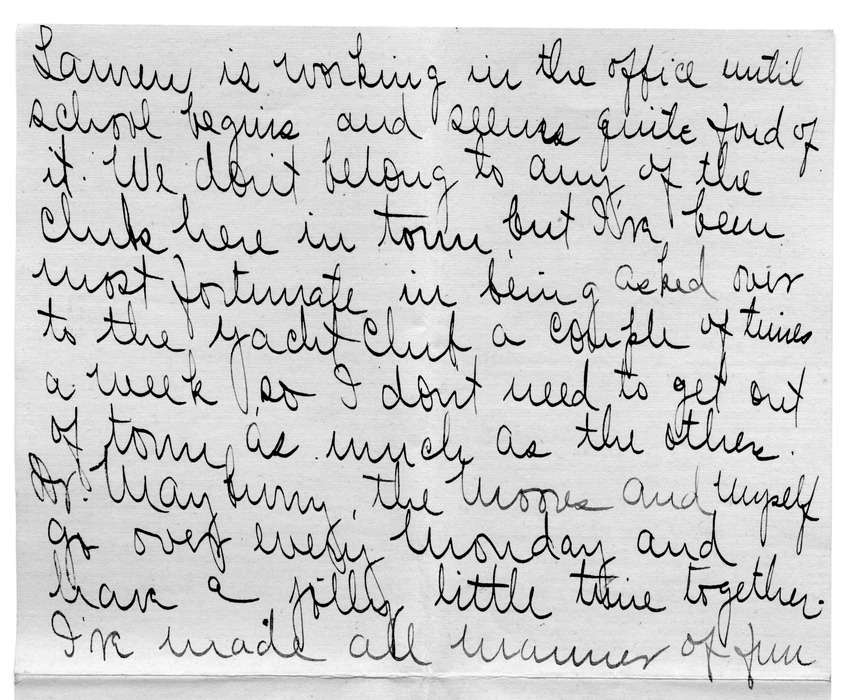 Lauren is working in the office until
school begins and seems quite fond of
it. We don't belong to any of the
clubs here in town, but I've been
most fortunate in being asked over
to the yacht club a couple of times
a week, so I don't need to get out
of town as much as the others.
Dr. Mayburry, the Moores and myself
go over every Monday and
have a jolly little time together.
I've made all manner of fun